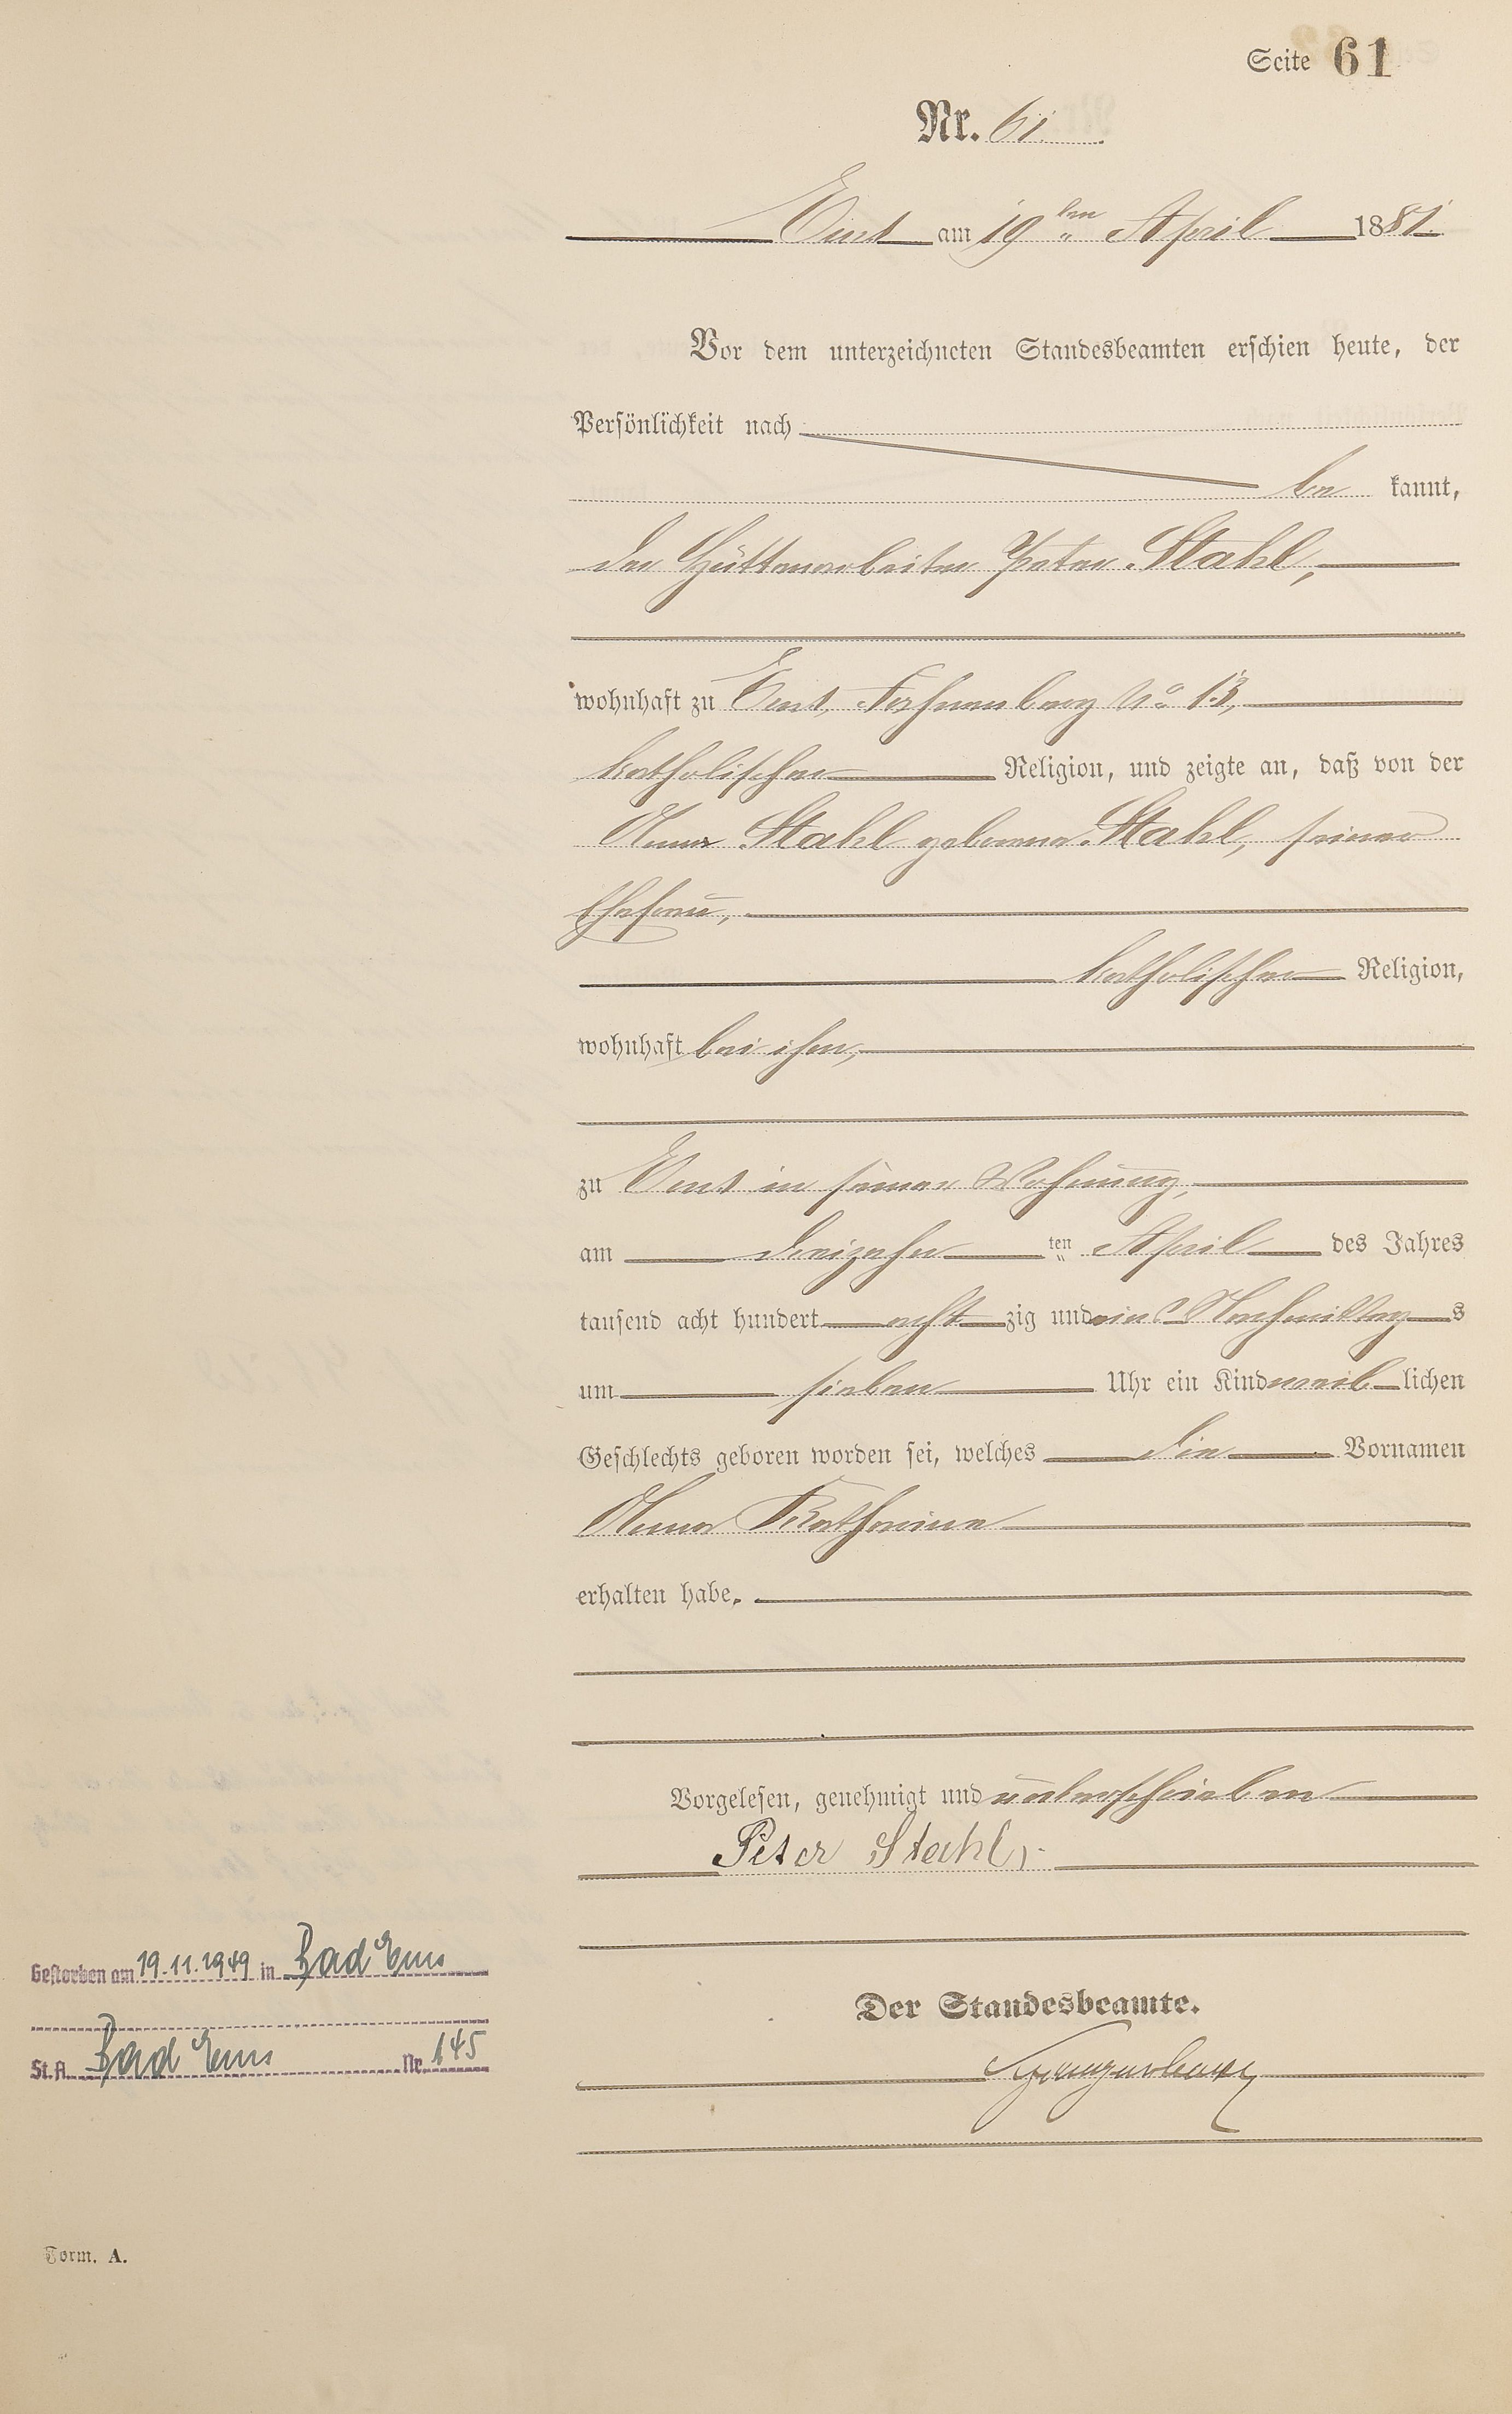 Seite 61
Nr. 61.
Ems am 19ten April 1881.
Vor dem unterzeichneten Standesbeamten erschien heute, der
Persönlichkeit nach
be kannt,
der Hüttenarbeiter Peter Stahl,
wohnhaft zu Ems, No 13,
katholischer Religion, und zeigte an, daß von der
Anna Stahl geborene Stahl, seiner
Ehefrau,
katholischer Religion,
wohnhaft bei ihm,
zu Ems in seiner Wohnung,
am dreizehn ten April des Jahres
tausend acht hundert acht zig und eins Nachmittag s
um sieben Uhr ein Kind weib lichen
Geschlechts geboren worden sei, welches die Vornamen
Anna Katharina
erhalten habe.
Vorgelesen, genehmigt und unterschrieben
Peter Stahl,
Gestorben am 19.11.1949 in Bad Ems
St. A. Bad Ems Nr. 145
Der Standesbeamte.
Form. A.